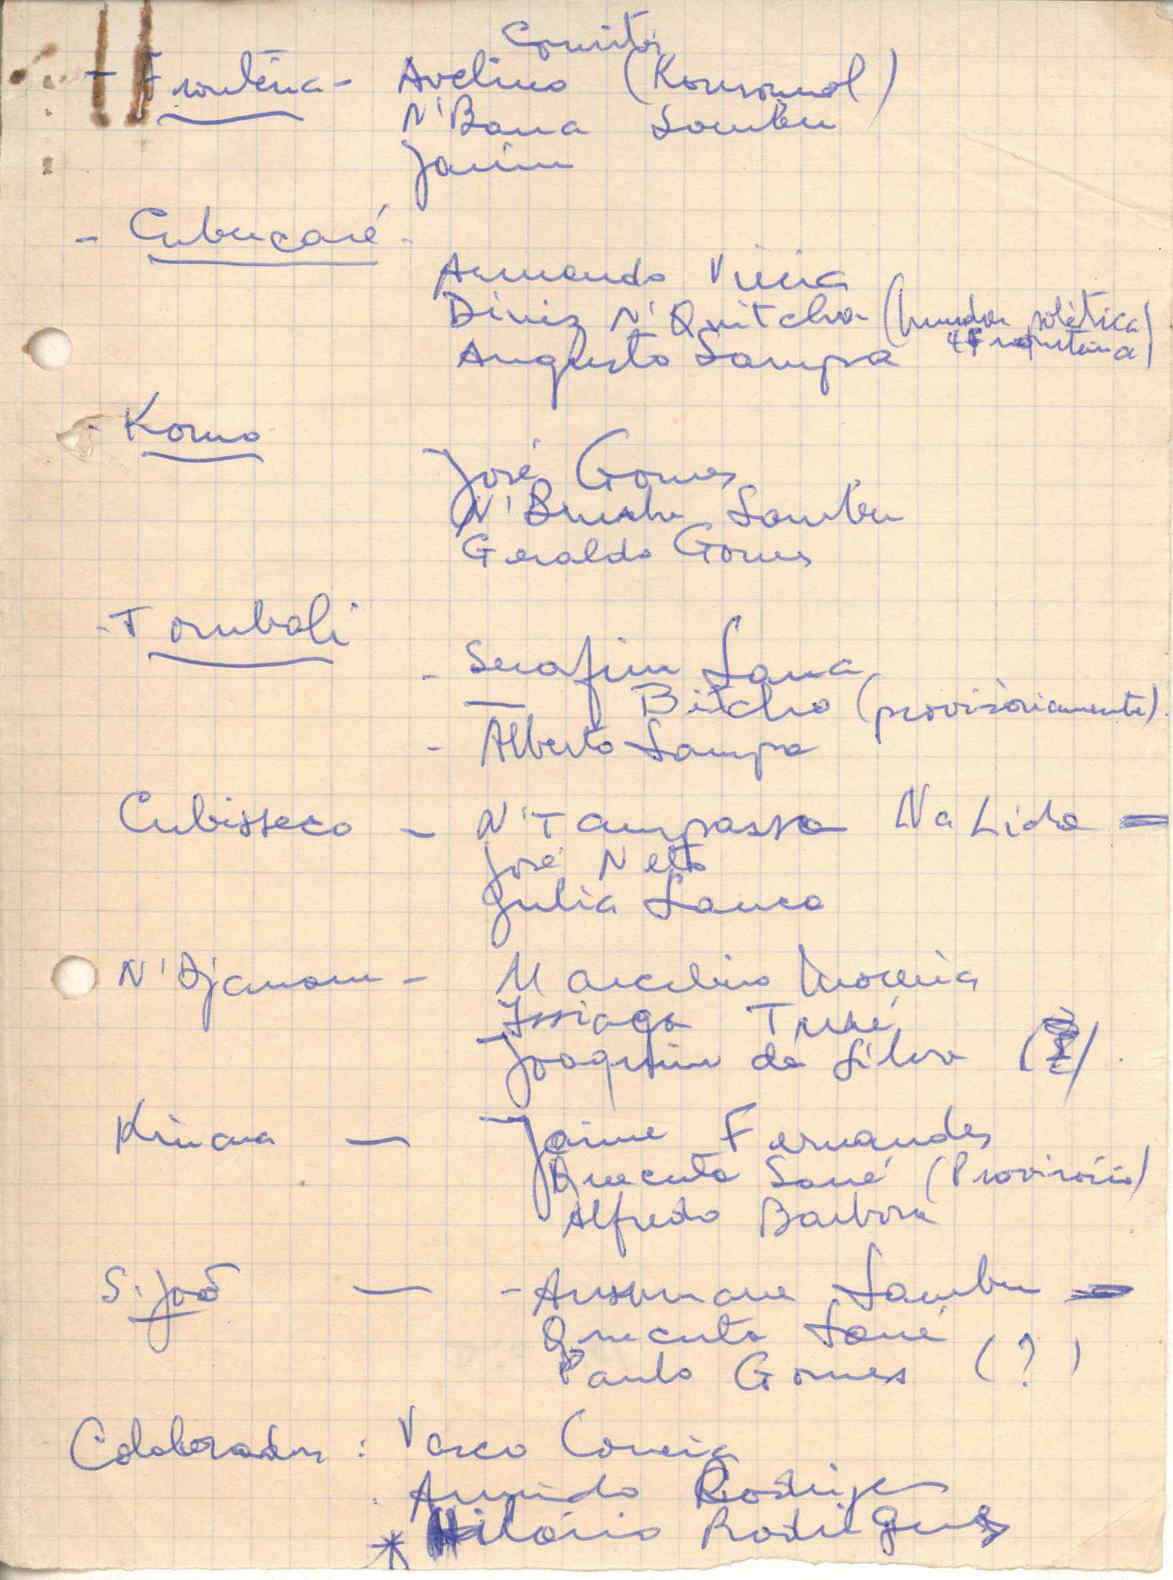 Comités
- Frontéria - Avelino (Komsomol)
N'Bana Sambu
Janim
- Cubucaré -
Armando Vieira
Diniz N'Quitcha (hundar política
Augusto Sampa
- Komo
José Gomes
N'Bunha Sambu
Geraldo Gomes
- Tombali
- Serafim Sana
— Bitcho (provisòriamente)
- Alberto Sampa
Cubisseco - N'Tampassa Na Lida =
José Neto
Julia Sanca
N'Djanom - Marcelino Moreira
Issiaga Turé
Joaquim da Silva
Kinara — Jaime Fernandes
Quecuta Sané (Provisório)
Alfredo Barbosa
S. João — - Ansumane Sambu =
Quecuta Sané
Paulo Gomes (?)
Colaboradores : Vasco Correia
Armindo Rodrigues
* Hilário Rodrigues